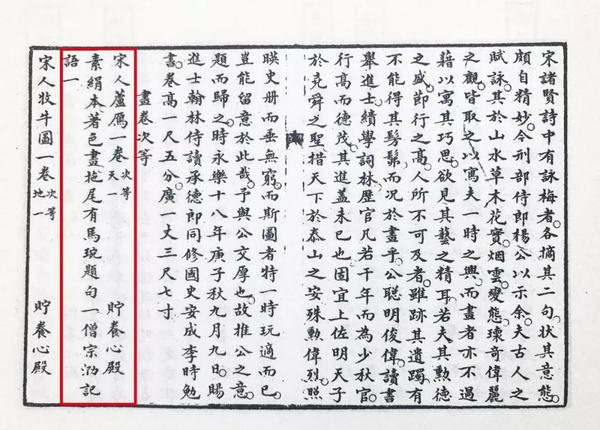 宋諸賢詩中有詠梅者各摘其二句狀其意態
頗自精妙今刑部侍郎楊公以示余夫古人之
賦詠其於山水草木花實烟雲變態瓌奇偉麗
之觀皆取之以寓夫一時之興而畫者亦不過
藉以寓其巧思欲見其藝之精耳若夫其勲德
之盛節行之高人所不可及者雖跡其遺躅有
不能得其髣髴而况於畫乎公聰明俊偉讀書
舉進士績學詞林歷官凡若干年而為少秋官
行高而德茂其進蓋未已也固宜上佐明天子
於堯舜之聖措天下於泰山之安殊勲偉烈照
暎史册而垂無窮而斯圖者特一時玩適而已
豈能留意於此哉予與公交厚也故推公之意
題而歸之時永樂十八年庚子秋九月九日賜
進士翰林侍讀承德郎同修國史安成李時勉
書卷高一尺五分廣一丈三尺七寸
畫卷次等
宋人蘆鴈一卷 次等天一 貯養心殿
素絹本著色畫拖尾有馬琬題句一僧宗泐記
語一
宋人牧牛圖一卷 次等地一 貯養心殿